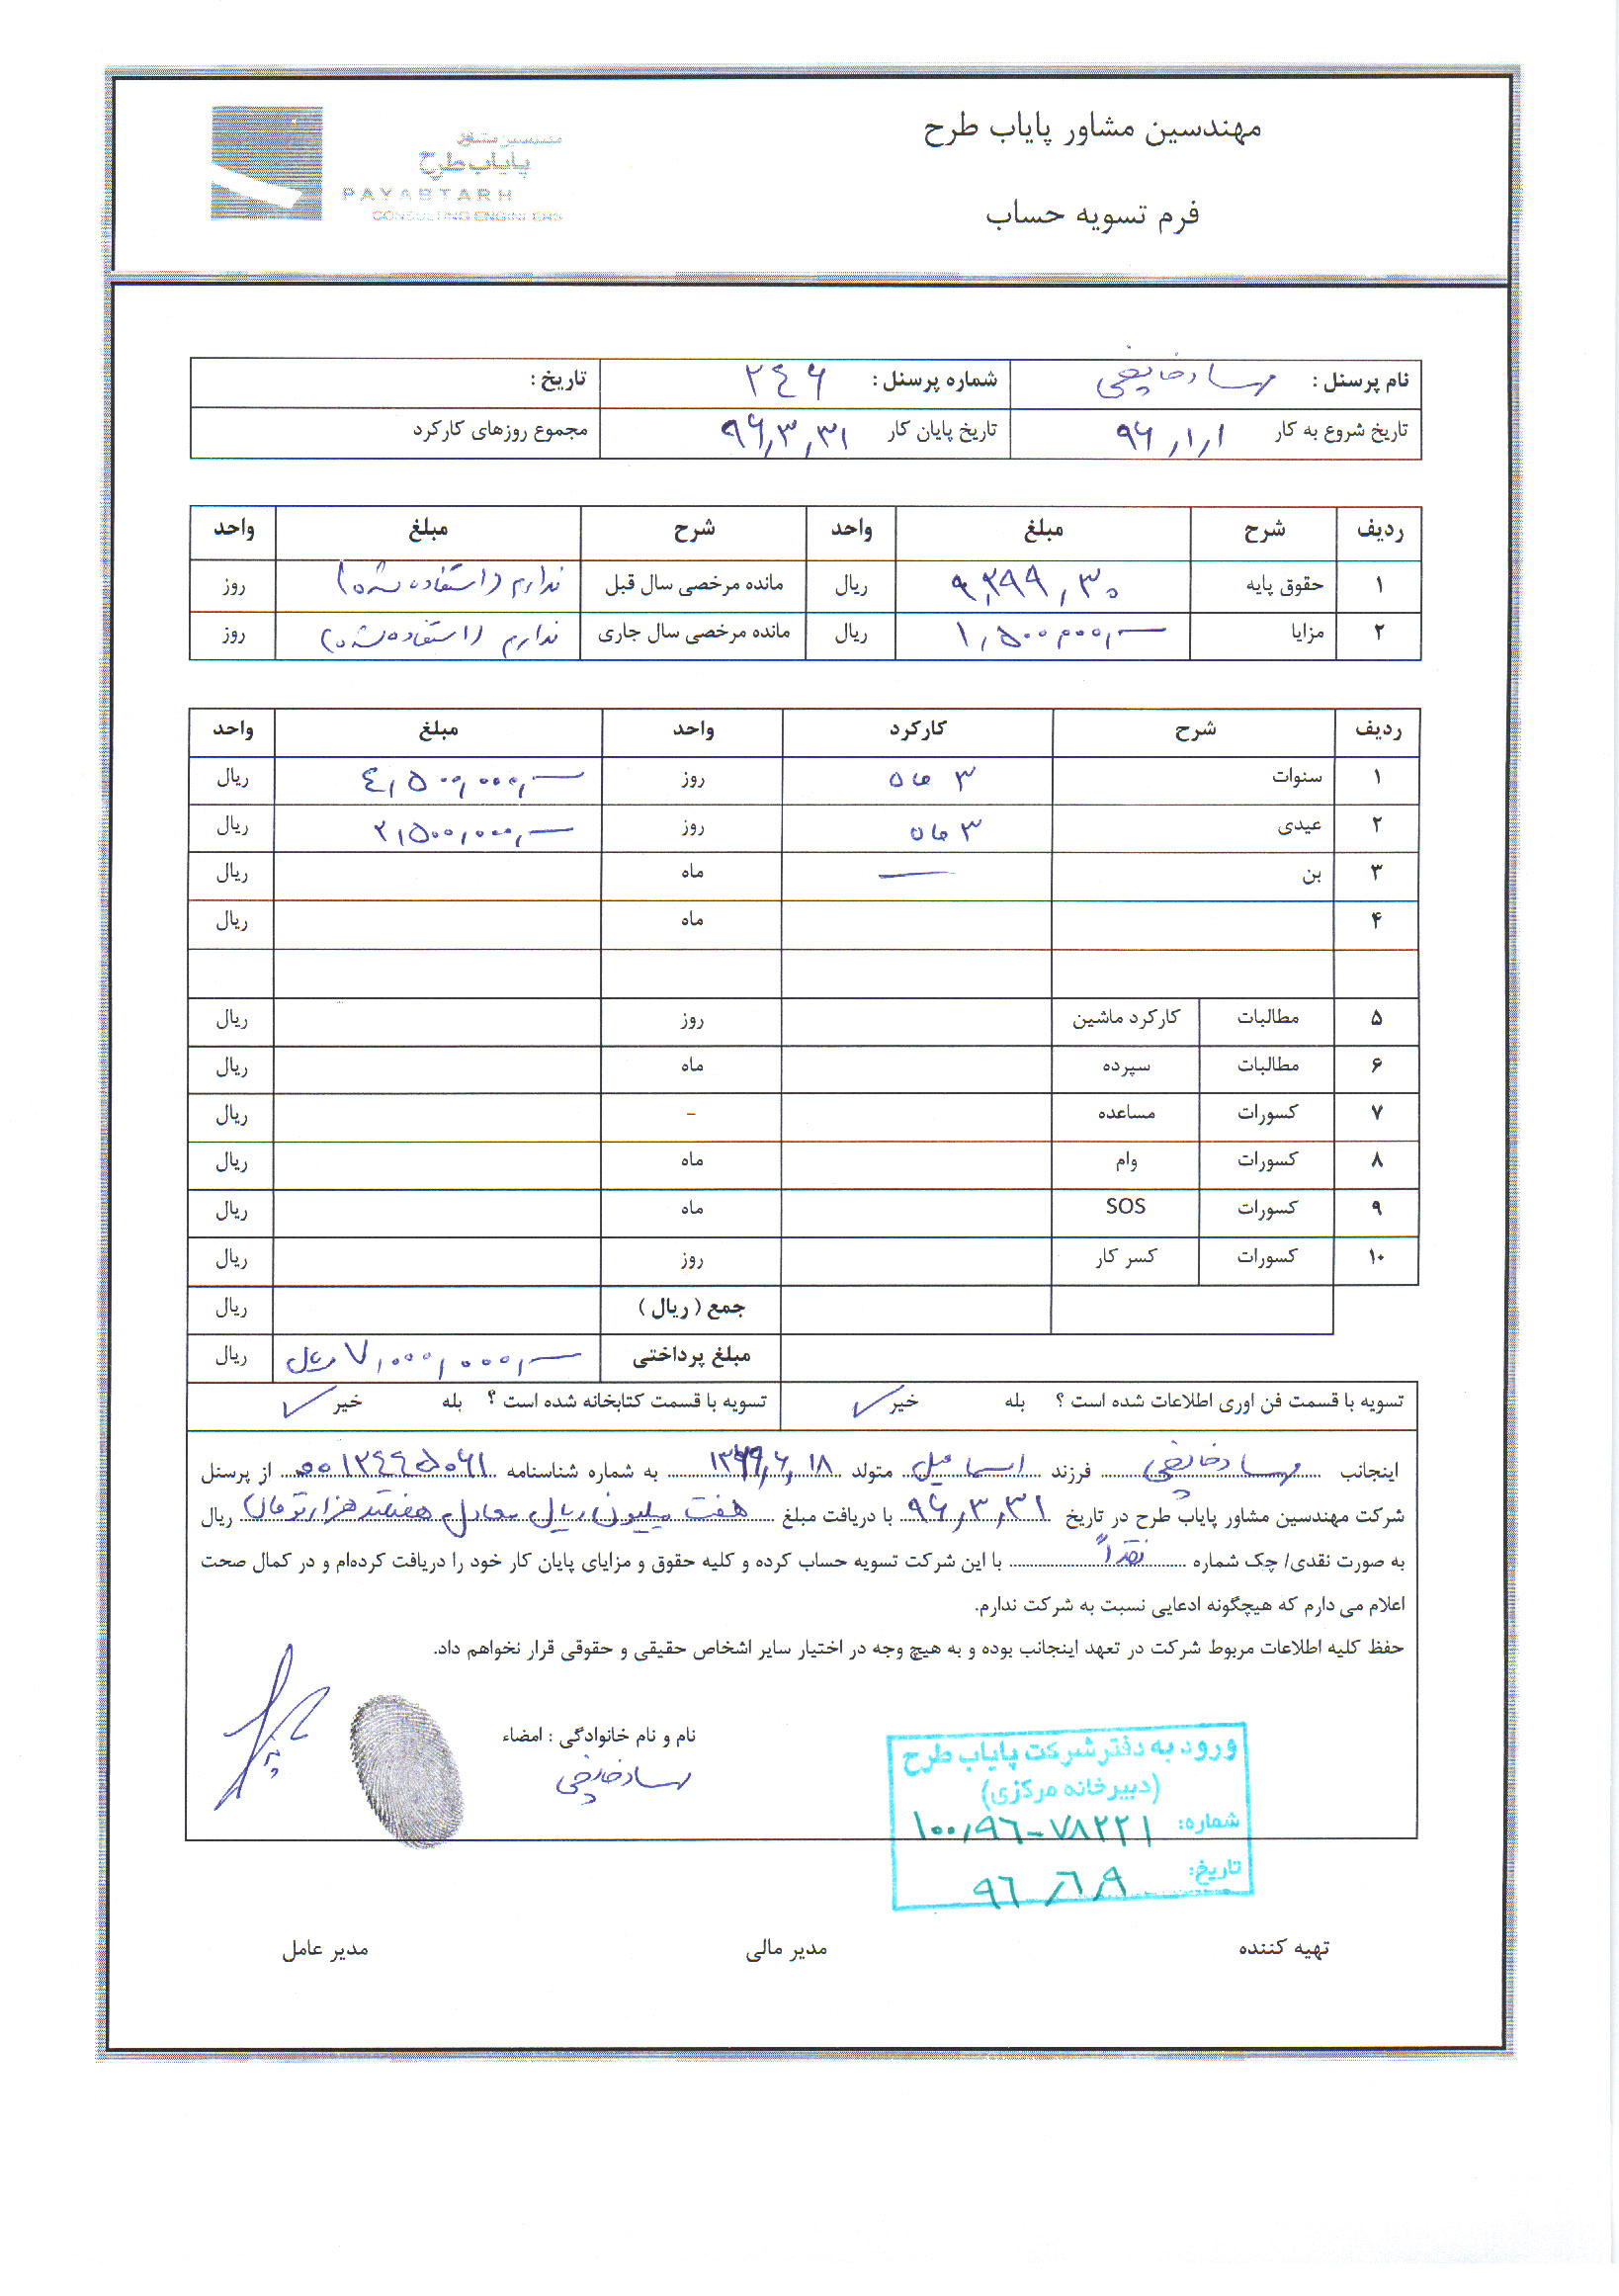 مهندسین مشاور پایاب طرح
فرم تسویه حساب
مهندسین مشاور
پایاب طرح
PAYABTARH
CONSULTING ENGINEERS
نام پرسنل : شماره پرسنل : ۲۴۶ تاریخ :
تاریخ شروع به کار ۹۶/۱/۱ تاریخ پایان کار ۹۶/۳/۳۱ مجموع روزهای کارکرد
ردیف شرح مبلغ واحد شرح مبلغ واحد
۱ حقوق پایه ریال مانده مرخصی سال قبل ندارم (استفاده شده) روز
۲ مزایا ۱,۵۰۰,۰۰۰,— ریال مانده مرخصی سال جاری ندارم (استفاده شده) روز
ردیف شرح کارکرد واحد مبلغ واحد
۱ سنوات ۳ ماه روز ۴,۵۰۰,۰۰۰,— ریال
۲ عیدی ۳ ماه روز ۲,۵۰۰,۰۰۰,— ریال
۳ بن — ماه ریال
۴ ماه ریال
۵ مطالبات کارکرد ماشین روز ریال
۶ مطالبات سپرده ماه ریال
۷ کسورات مساعده - ریال
۸ کسورات وام ماه ریال
۹ کسورات SOS ماه ریال
۱۰ کسورات کسر کار روز ریال
جمع ( ریال ) ریال
مبلغ پرداختی ۷,۰۰۰,۰۰۰,— ریال ریال
تسویه با قسمت فن اوری اطلاعات شده است ؟ بله خیر ✓ تسویه با قسمت کتابخانه شده است ؟ بله خیر ✓
اینجانب فرزند اسماعیل متولد به شماره شناسنامه ۰۰۱۲۴۴۵۰۶۱ از پرسنل
شرکت مهندسین مشاور پایاب طرح در تاریخ ۹۶/۳/۳۱ با دریافت مبلغ هفت میلیون ریال معادل هفتصد هزار تومان ریال
به صورت نقدی/ چک شماره نقداً با این شرکت تسویه حساب کرده و کلیه حقوق و مزایای پایان کار خود را دریافت کرده‌ام و در کمال صحت
اعلام می دارم که هیچگونه ادعایی نسبت به شرکت ندارم.
حفظ کلیه اطلاعات مربوط شرکت در تعهد اینجانب بوده و به هیچ وجه در اختیار سایر اشخاص حقیقی و حقوقی قرار نخواهم داد.
نام و نام خانوادگی : امضاء
ورود به دفتر شرکت پایاب طرح
(دبیرخانه مرکزی)
شماره: ۱۰۰/۹۶-۷۸۲۲۱
تاریخ: ۹۶/۶/۹
تهیه کننده مدیر مالی مدیر عامل